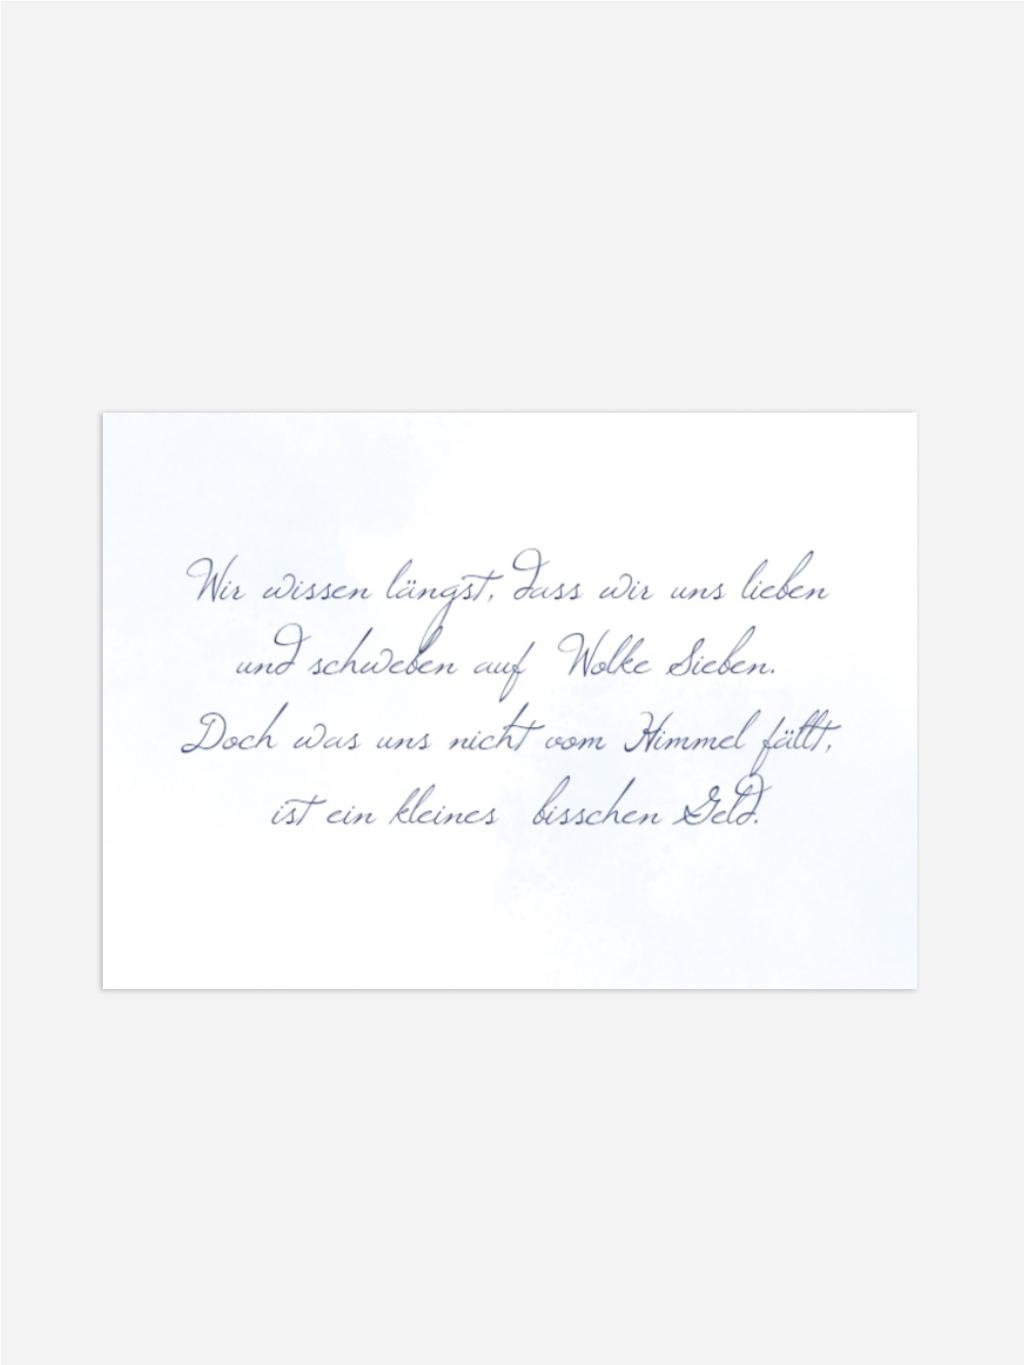 Wir wissen längst, dass wir uns lieben
und schweben auf Wolke Sieben.
Doch was uns nicht vom Himmel fällt,
ist ein kleines bisschen Geld.